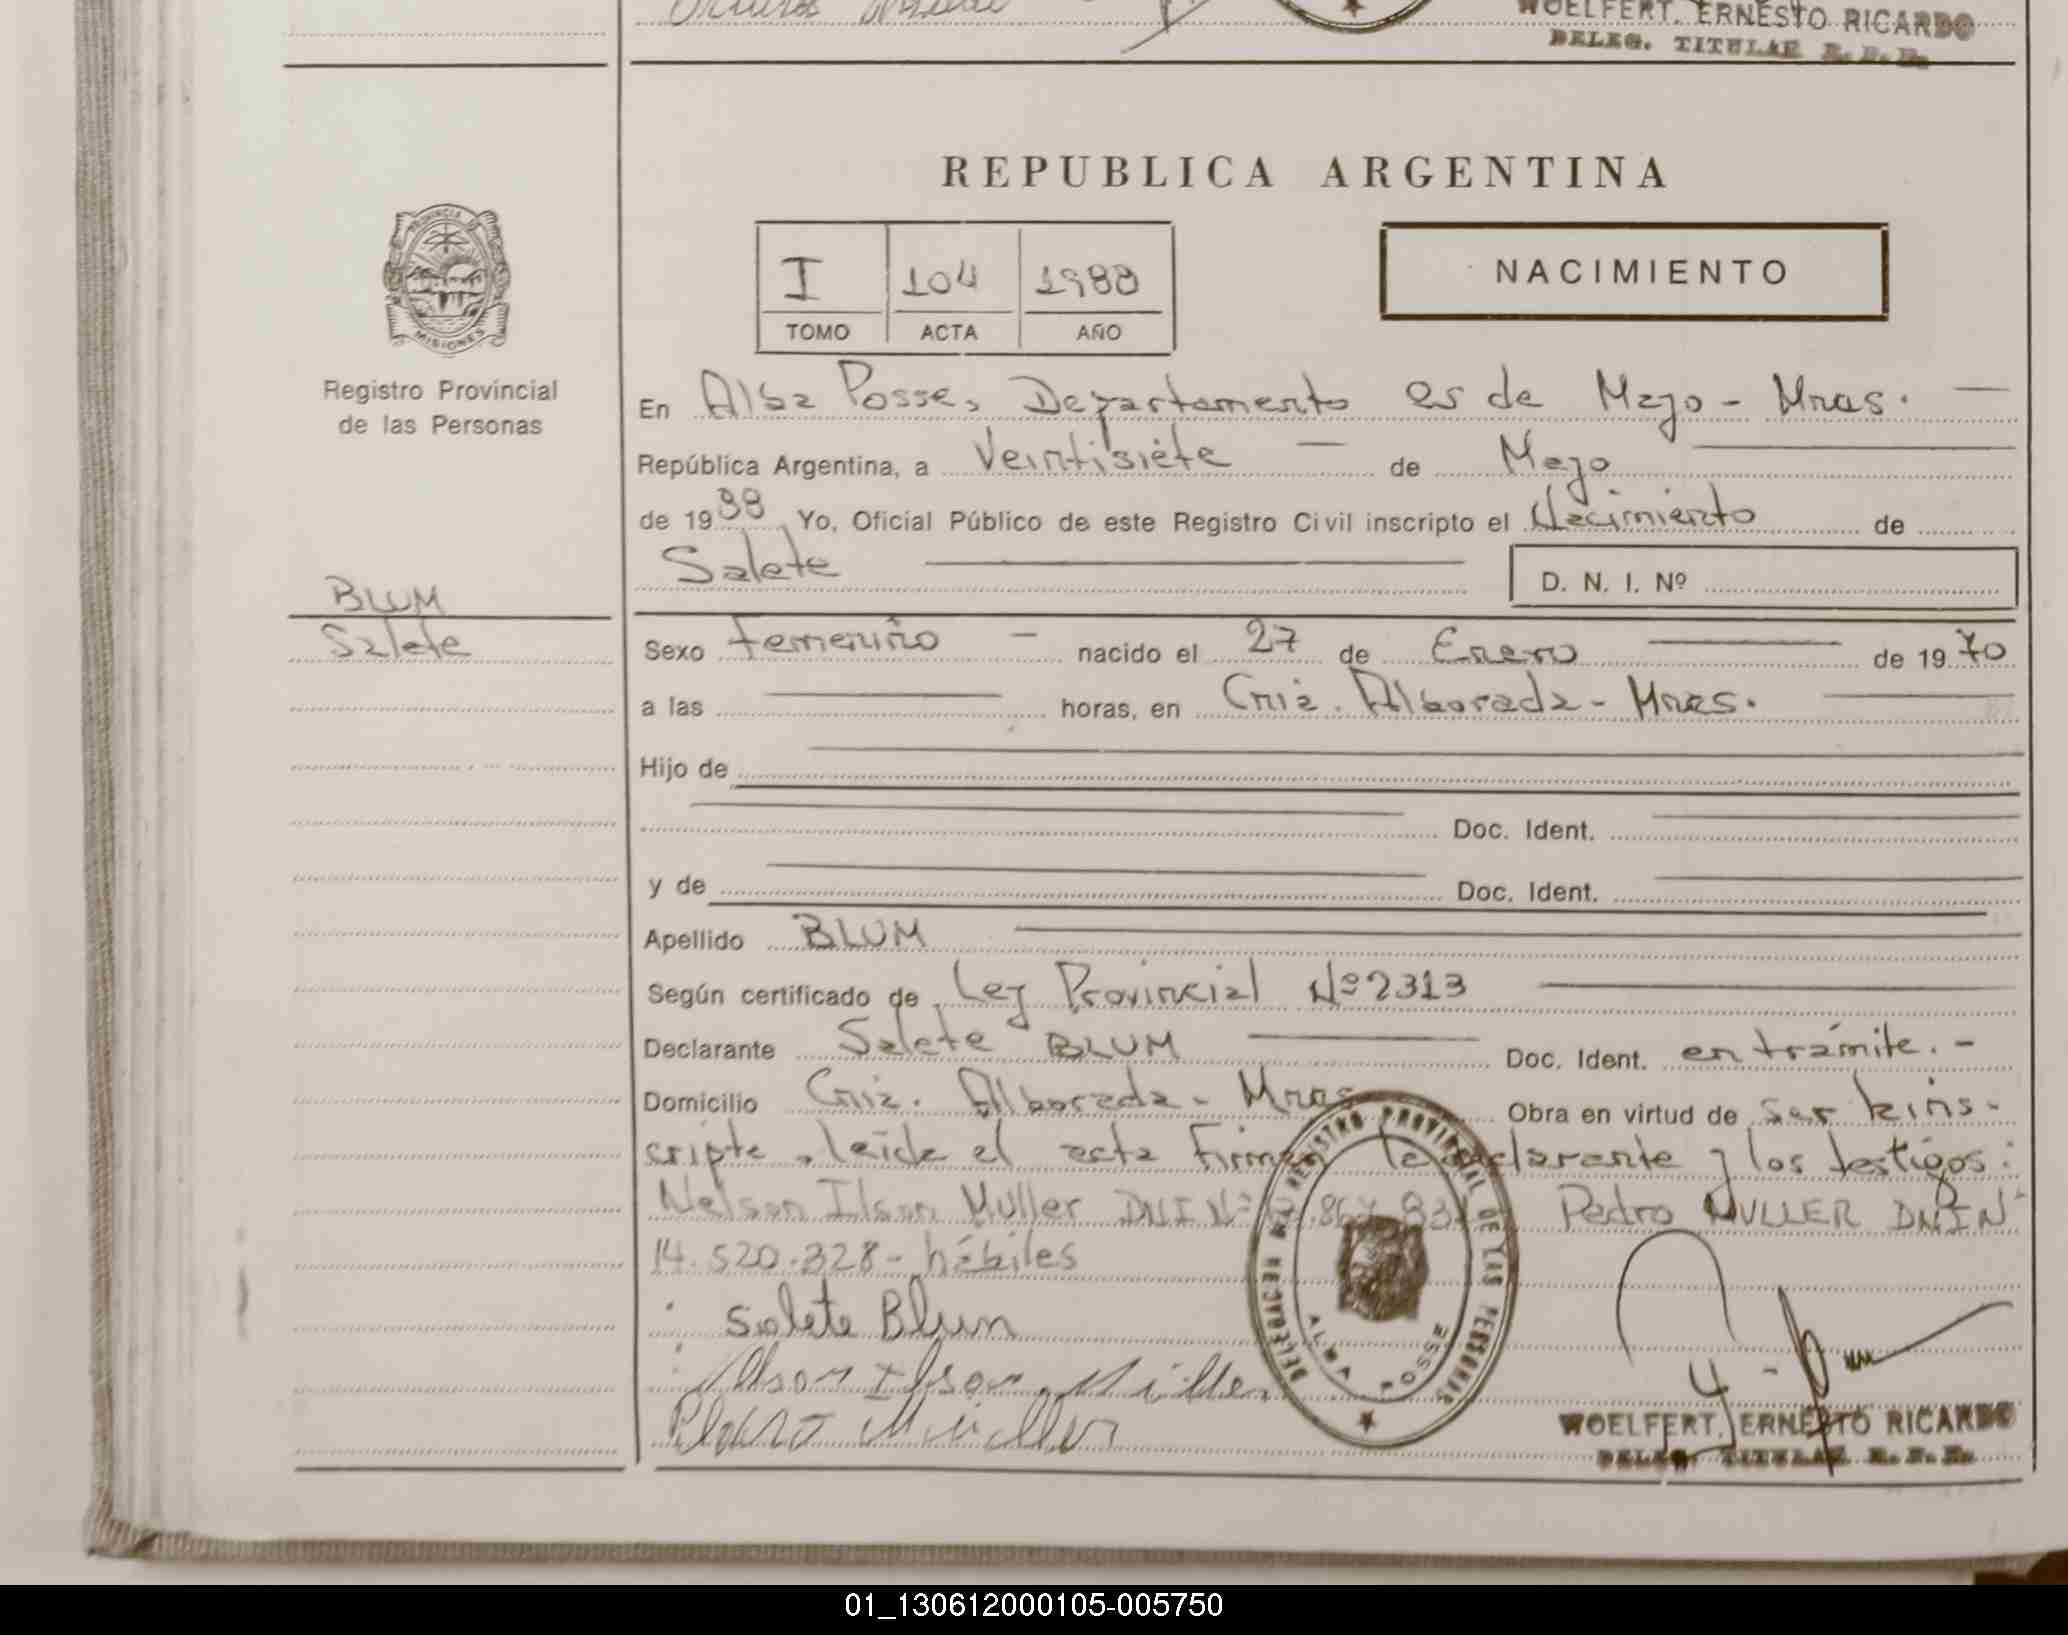 WOELFERT, ERNESTO RICARDO
DELEG. TITULAR R. P. P.
REPUBLICA ARGENTINA
PROVINCIA DE
MISIONES
Registro Provincial
de las Personas
I 104 1988
TOMO ACTA AÑO
NACIMIENTO
En Alba Posse, Departamento 25 de Mayo - Mnes.
República Argentina, a Veintisiete de Mayo
de 1988 Yo, Oficial Público de este Registro Civil inscripto el Nacimiento de
Salete
D. N. I. Nº
BLUM
Salete
Sexo femenino - nacido el 27 de Enero de 1970
a las horas, en Cnia. Alborada - Mnes.
Hijo de
Doc. Ident.
y de Doc. Ident.
Apellido BLUM
Según certificado de Ley Provincial Nº 2313
Declarante Salete BLUM Doc. Ident. en trámite. -
Domicilio Cnia. Alborada - Mnes Obra en virtud de ser
cripta, leída el acta Firman la declarante y los testigos:
Nelson Ilson Muller DNI Nº Pedro MULLER DNI Nº
14.520.328 - hábiles
Salete Blum
Nelson Ilson Müller
Pedro Müller
DELEGACION DEL REGISTRO PROVINCIAL DE LAS PERSONAS
ALBA POSSE
WOELFERT, ERNESTO RICARDO
DELEG. TITULAR R. P. P.
01_130612000105-005750